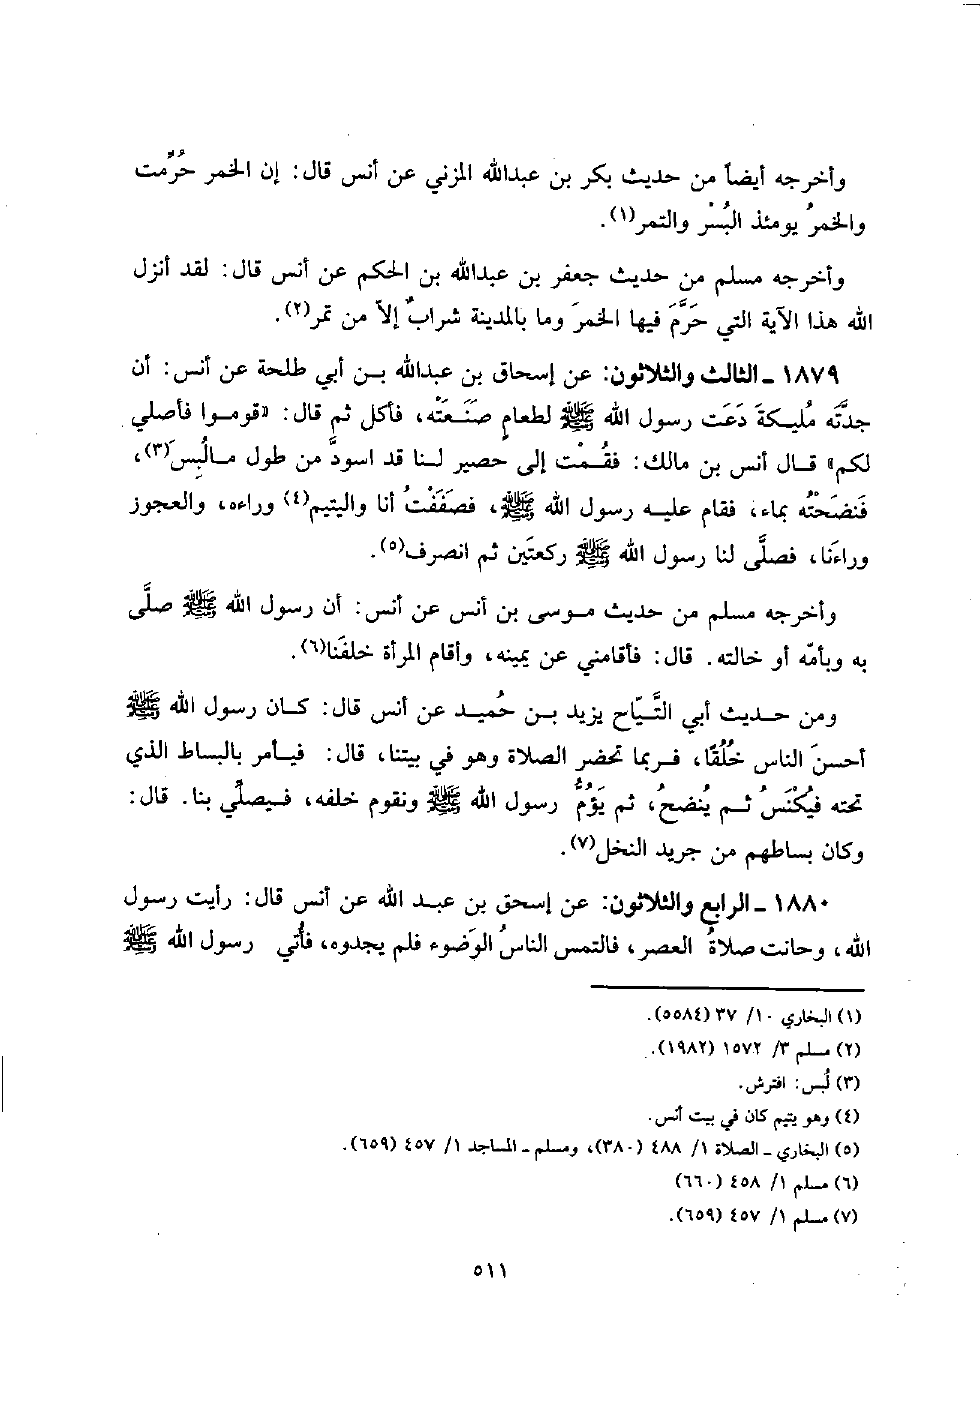 وأخرجه أيضاً من حديث بكر بن عبدالله المزني عن أنس قال: إن الخمر حُرِّمت
والخمرُ يومئذ البُسْر والتمر(١).
وأخرجه مسلم من حديث جعفر بن عبدالله بن الحكم عن أنس قال: لقد أنزل
الله هذا الآية التي حَرَّمَ فيها الخمرَ وما بالمدينة شرابٌ إلاّ من تمر(٢).
١٨٧٩ ـ الثالث والثلاثون: عن إسحاق بن عبدالله بـن أبي طلحة عن أنس: أن
جدتَّه مُليكةَ دَعَت رسول الله ﷺ لطعامٍ صنَعَتْه، فأكل ثم قال: «قومـوا فأصلي
لكم» قـال أنس بن مالك: فقُـمْت إلى حصير لـنا قد اسودَّ من طول مـالُبِس(٣)،
فَنضَحْتُه بماء، فقام عليـه رسول الله ﷺ، فصَفَفْتُ أنا واليتيم(٤) وراءه، والعجوز
وراءَنا، فصلَّى لنا رسول الله ﷺ ركعتَين ثم انصرف(٥).
وأخرجه مسلم من حديث مـوسى بن أنس عن أنس: أن رسول الله ﷺ صلَّى
به وبأمّه أو خالته. قال: فأقامني عن يمينه، وأقام المرأة خلفَنا(٦).
ومن حـديث أبي التَّيّاح يزيد بـن حُميـد عن أنس قال: كـان رسول الله ﷺ
أحسنَ الناس خلُقًا، فـربما تحضر الصلاة وهو في بيتنا، قال: فيـأمر بالبساط الذي
تحته فيُكْنَسُ ثـم يُنضحُ، ثم يَؤُمُّ رسول الله ﷺ ونقوم خلفه، فـيصلِّي بنا. قال:
وكان بساطهم من جريد النخل(٧).
١٨٨٠ ـ الرابع والثلاثون: عن إسحق بن عبـد الله عن أنس قال: رأيت رسول
الله، وحانت صلاةُ العصر، فالتمس الناسُ الوَضوء فلم يجدوه، فأُتي رسول الله ﷺ
(١) البخاري ١٠/ ٣٧ (٥٥٨٤).
(٢) مسلم ٣/ ١٥٧٢ (١٩٨٢).
(٣) لُبس: افترش.
(٤) وهو يتيم كان في بيت أنس.
(٥) البخاري ـ الصلاة ١/ ٤٨٨ (٣٨٠)، ومسلم ـ المساجد ١/ ٤٥٧ (٦٥٩).
(٦) مسلم ١/ ٤٥٨ (٦٦٠)
(٧) مسلم ١/ ٤٥٧ (٦٥٩).
٥١١